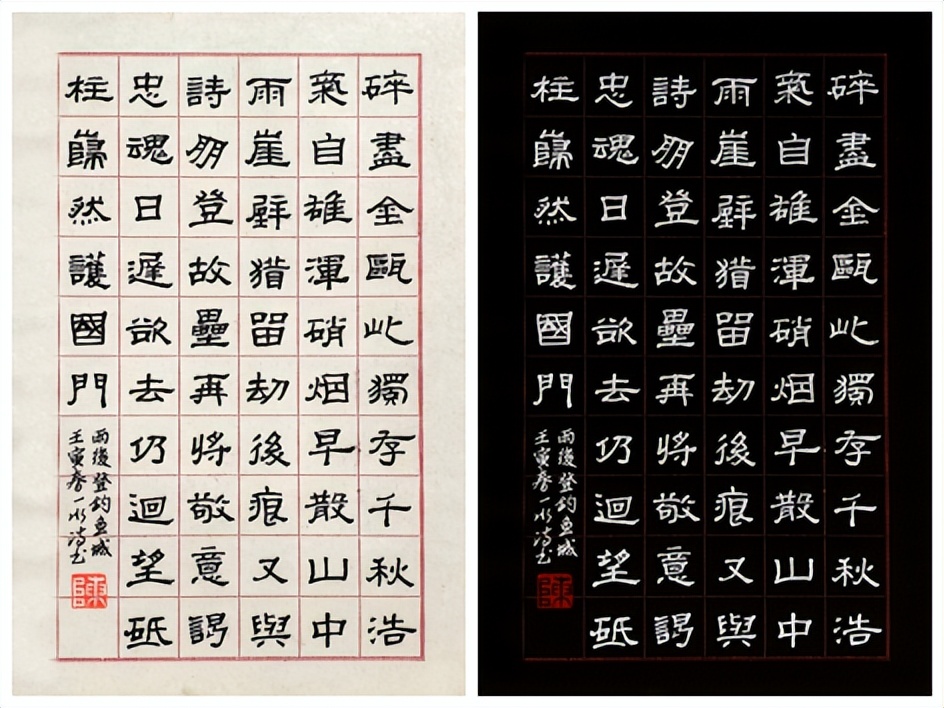 碎盡金甌此獨存千秋浩
氣自雄渾硝烟早散山中
雨崖壁猶留劫後痕又與
詩朋登故壘再將敬意謁
忠魂日遲欲去仍迴望砥
柱巋然護國門
雨後登釣魚城
壬寅春一水詩书
陳
碎盡金甌此獨存千秋浩
氣自雄渾硝烟早散山中
雨崖壁猶留劫後痕又與
詩朋登故壘再將敬意謁
忠魂日遲欲去仍迴望砥
柱巋然護國門
雨後登釣魚城
壬寅春一水詩书
陳